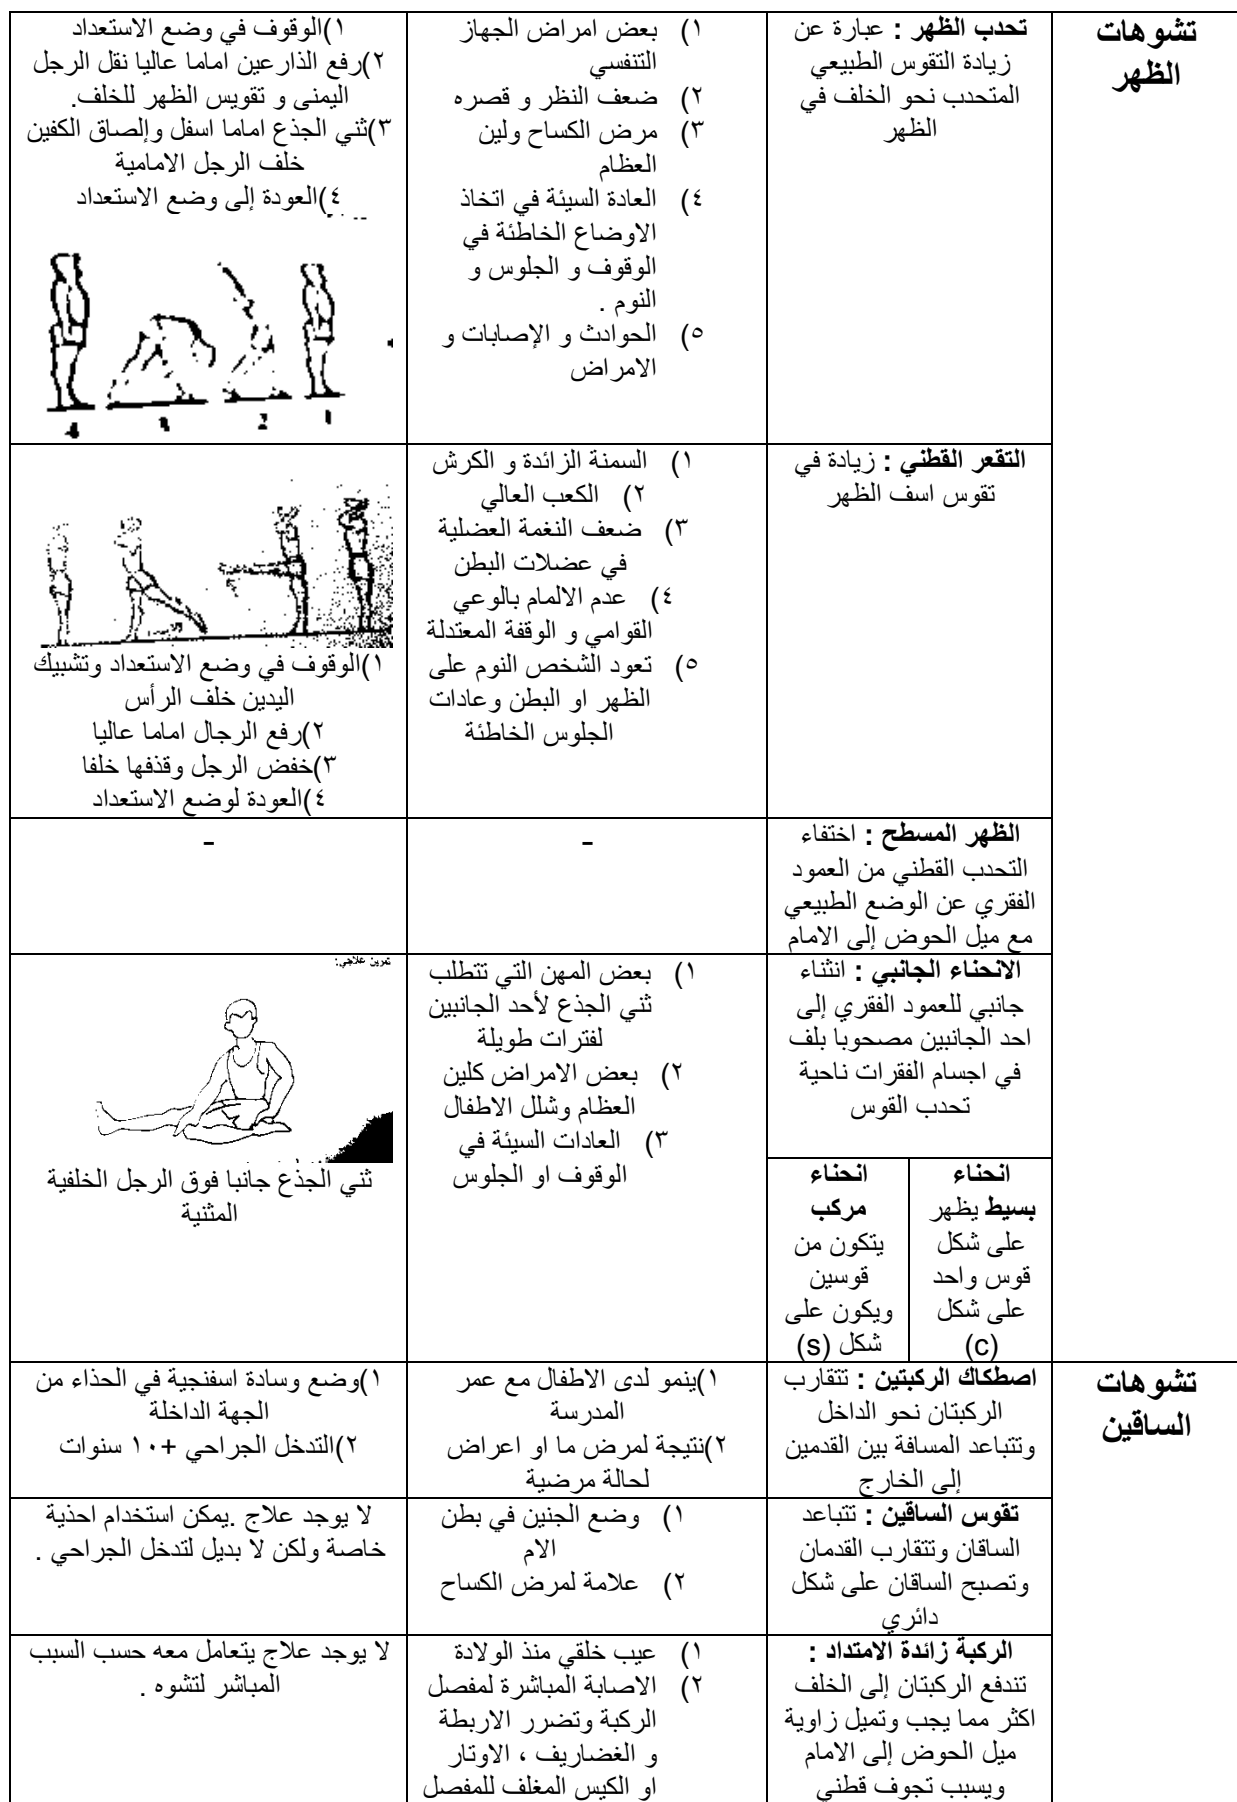 تشوهات
الظهر
تحدب الظهر : عبارة عن
زيادة التقوس الطبيعي
المتحدب نحو الخلف في
الظهر
١) بعض امراض الجهاز
التنفسي
٢) ضعف النظر و قصره
٣) مرض الكساح ولين
العظام
٤) العادة السيئة في اتخاذ
الاوضاع الخاطئة في
الوقوف و الجلوس و
النوم .
٥) الحوادث و الإصابات و
الامراض
١)الوقوف في وضع الاستعداد
٢)رفع الذارعين اماما عاليا نقل الرجل
اليمنى و تقويس الظهر للخلف.
٣)ثني الجذع اماما اسفل وإلصاق الكفين
خلف الرجل الامامية
٤)العودة إلى وضع الاستعداد
4 3 2 1
التقعر القطني : زيادة في
تقوس اسف الظهر
١) السمنة الزائدة و الكرش
٢) الكعب العالي
٣) ضعف النغمة العضلية
في عضلات البطن
٤) عدم الالمام بالوعي
القوامي و الوقفة المعتدلة
٥) تعود الشخص النوم على
الظهر او البطن وعادات
الجلوس الخاطئة
١)الوقوف في وضع الاستعداد وتشبيك
اليدين خلف الرأس
٢)رفع الرجال اماما عاليا
٣)خفض الرجل وقذفها خلفا
٤)العودة لوضع الاستعداد
الظهر المسطح : اختفاء
التحدب القطني من العمود
الفقري عن الوضع الطبيعي
مع ميل الحوض إلى الامام
-
-
الانحناء الجانبي : انثناء
جانبي للعمود الفقري إلى
احد الجانبين مصحوبا بلف
في اجسام الفقرات ناحية
تحدب القوس
انحناء
بسيط يظهر
على شكل
قوس واحد
على شكل
(c)
انحناء
مركب
يتكون من
قوسين
ويكون على
شكل (s)
١) بعض المهن التي تتطلب
ثني الجذع لأحد الجانبين
لفترات طويلة
٢) بعض الامراض كلين
العظام وشلل الاطفال
٣) العادات السيئة في
الوقوف او الجلوس
تمرين علاجي:
ثني الجذع جانبا فوق الرجل الخلفية
المثنية
تشوهات
الساقين
اصطكاك الركبتين : تتقارب
الركبتان نحو الداخل
وتتباعد المسافة بين القدمين
إلى الخارج
١)ينمو لدى الاطفال مع عمر
المدرسة
٢)نتيجة لمرض ما او اعراض
لحالة مرضية
١)وضع وسادة اسفنجية في الحذاء من
الجهة الداخلة
٢)التدخل الجراحي +١٠ سنوات
تقوس الساقين : تتباعد
الساقان وتتقارب القدمان
وتصبح الساقان على شكل
دائري
١) وضع الجنين في بطن
الام
٢) علامة لمرض الكساح
لا يوجد علاج .يمكن استخدام احذية
خاصة ولكن لا بديل لتدخل الجراحي .
الركبة زائدة الامتداد :
تندفع الركبتان إلى الخلف
اكثر مما يجب وتميل زاوية
ميل الحوض إلى الامام
ويسبب تجوف قطني
١) عيب خلقي منذ الولادة
٢) الاصابة المباشرة لمفصل
الركبة وتضرر الاربطة
و الغضاريف ، الاوتار
او الكيس المغلف للمفصل
لا يوجد علاج يتعامل معه حسب السبب
المباشر لتشوه .